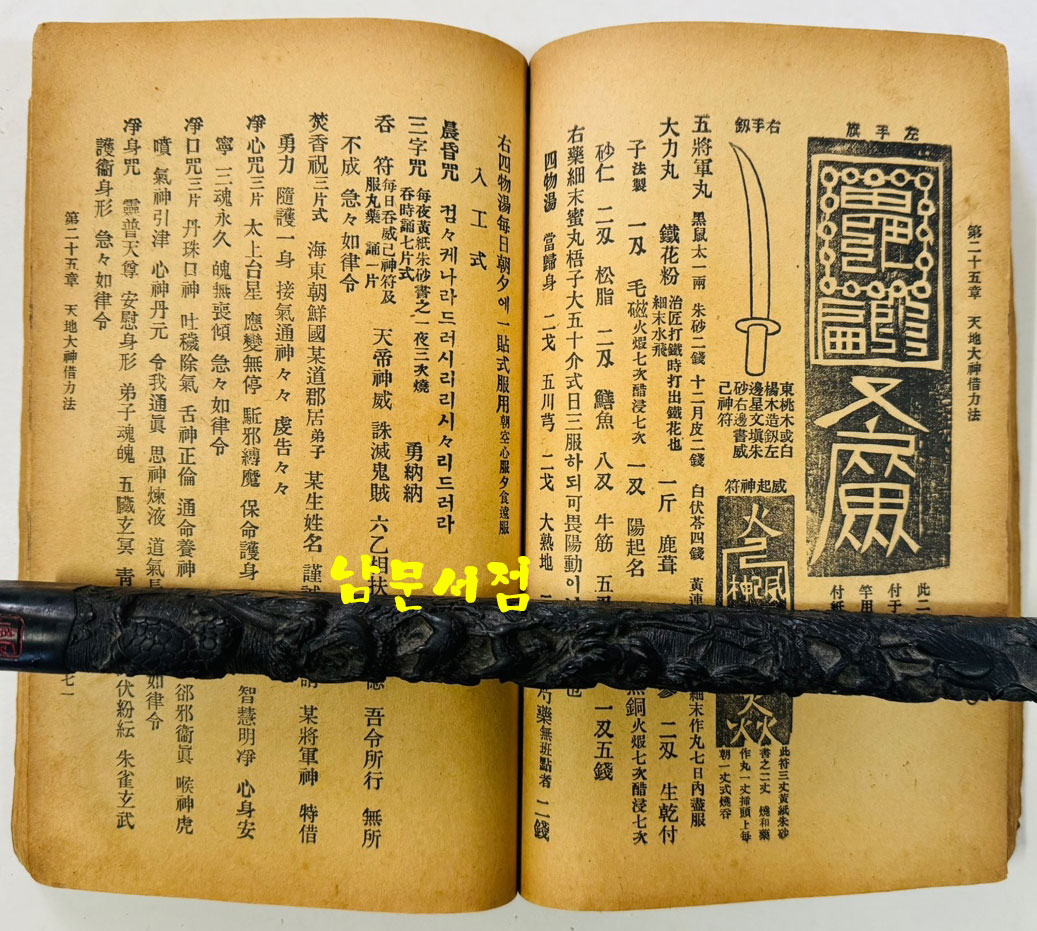 第二十五章 天地大神借力法
左手旗
此二
付于
竿用
付紙
右手劔
東桃木或白
楊木造釼左
邊星文塡朱
砂右邊書威
己神符
威起神符
此符三丈黃紙朱砂
書之二丈 燒和藥
作丸一丈揷頭上每
朝一丈式燒呑
五將軍丸 黑鼠太一兩 朱砂二錢 十二月皮二錢 白伏苓四錢 黃連
細末作丸七日內盡服
大力丸 鐵花粉 治匠打鐵時打出鐵花也 細末水飛 一斤 鹿茸
二刄 生乾付
子法製 一刄 毛磁火煆七次醋浸七次 一刄 陽起名
銅火煆七次醋浸七次
砂仁 二刄 松脂 二刄 鱔魚 八刄 牛筋 五刄
一刄五錢
右藥細末蜜丸梧子大五十介式日三服하되可畏陽動이
也
四物湯 當歸身 二戈 五川芎 二戈 大熟地
芍藥無班點者 二錢
右四物湯每日朝夕에一貼式服用朝空心服夕食遠服
入工式
晨昏咒 컴々케나라드러시리리시々리드러라
三字咒 每夜黃紙朱砂書之一夜三次燒 呑時誦七片式 勇納納
呑符 每日呑威己神符及 服丸藥 誦一片 天帝神威 誅滅鬼賊 六乙相扶
吾令所行 無所
不成 急々如律令
焚香祝三片式 海東朝鮮國某道郡居弟子 某生姓名 謹誠
某將軍神 特借
勇力 隨護一身 接氣通神々々 虔告々々
凈心咒三片 太上台星 應變無停 駈邪縛魔 保命護身
智慧明凈 心身安
寧 三魂永久 魄無喪傾 急々如律令
凈口咒三片 丹珠口神 吐穢除氣 舌神正倫 通命養神
郤邪衞眞 喉神虎
噴 氣神引津 心神丹元 令我通眞 思神煉液 道氣長
如律令
凈身咒 靈普天尊 安慰身形 弟子魂魄 五臟玄冥 青
伏紛紜 朱雀玄武
護衞身形 急々如律令
第二十五章 天地大神借力法
七一
남문서점